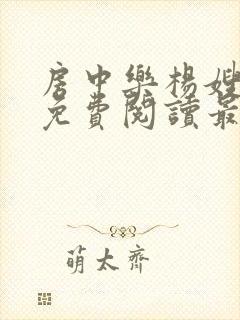 房中樂楊嫂
免費閱讀最
萌太齊